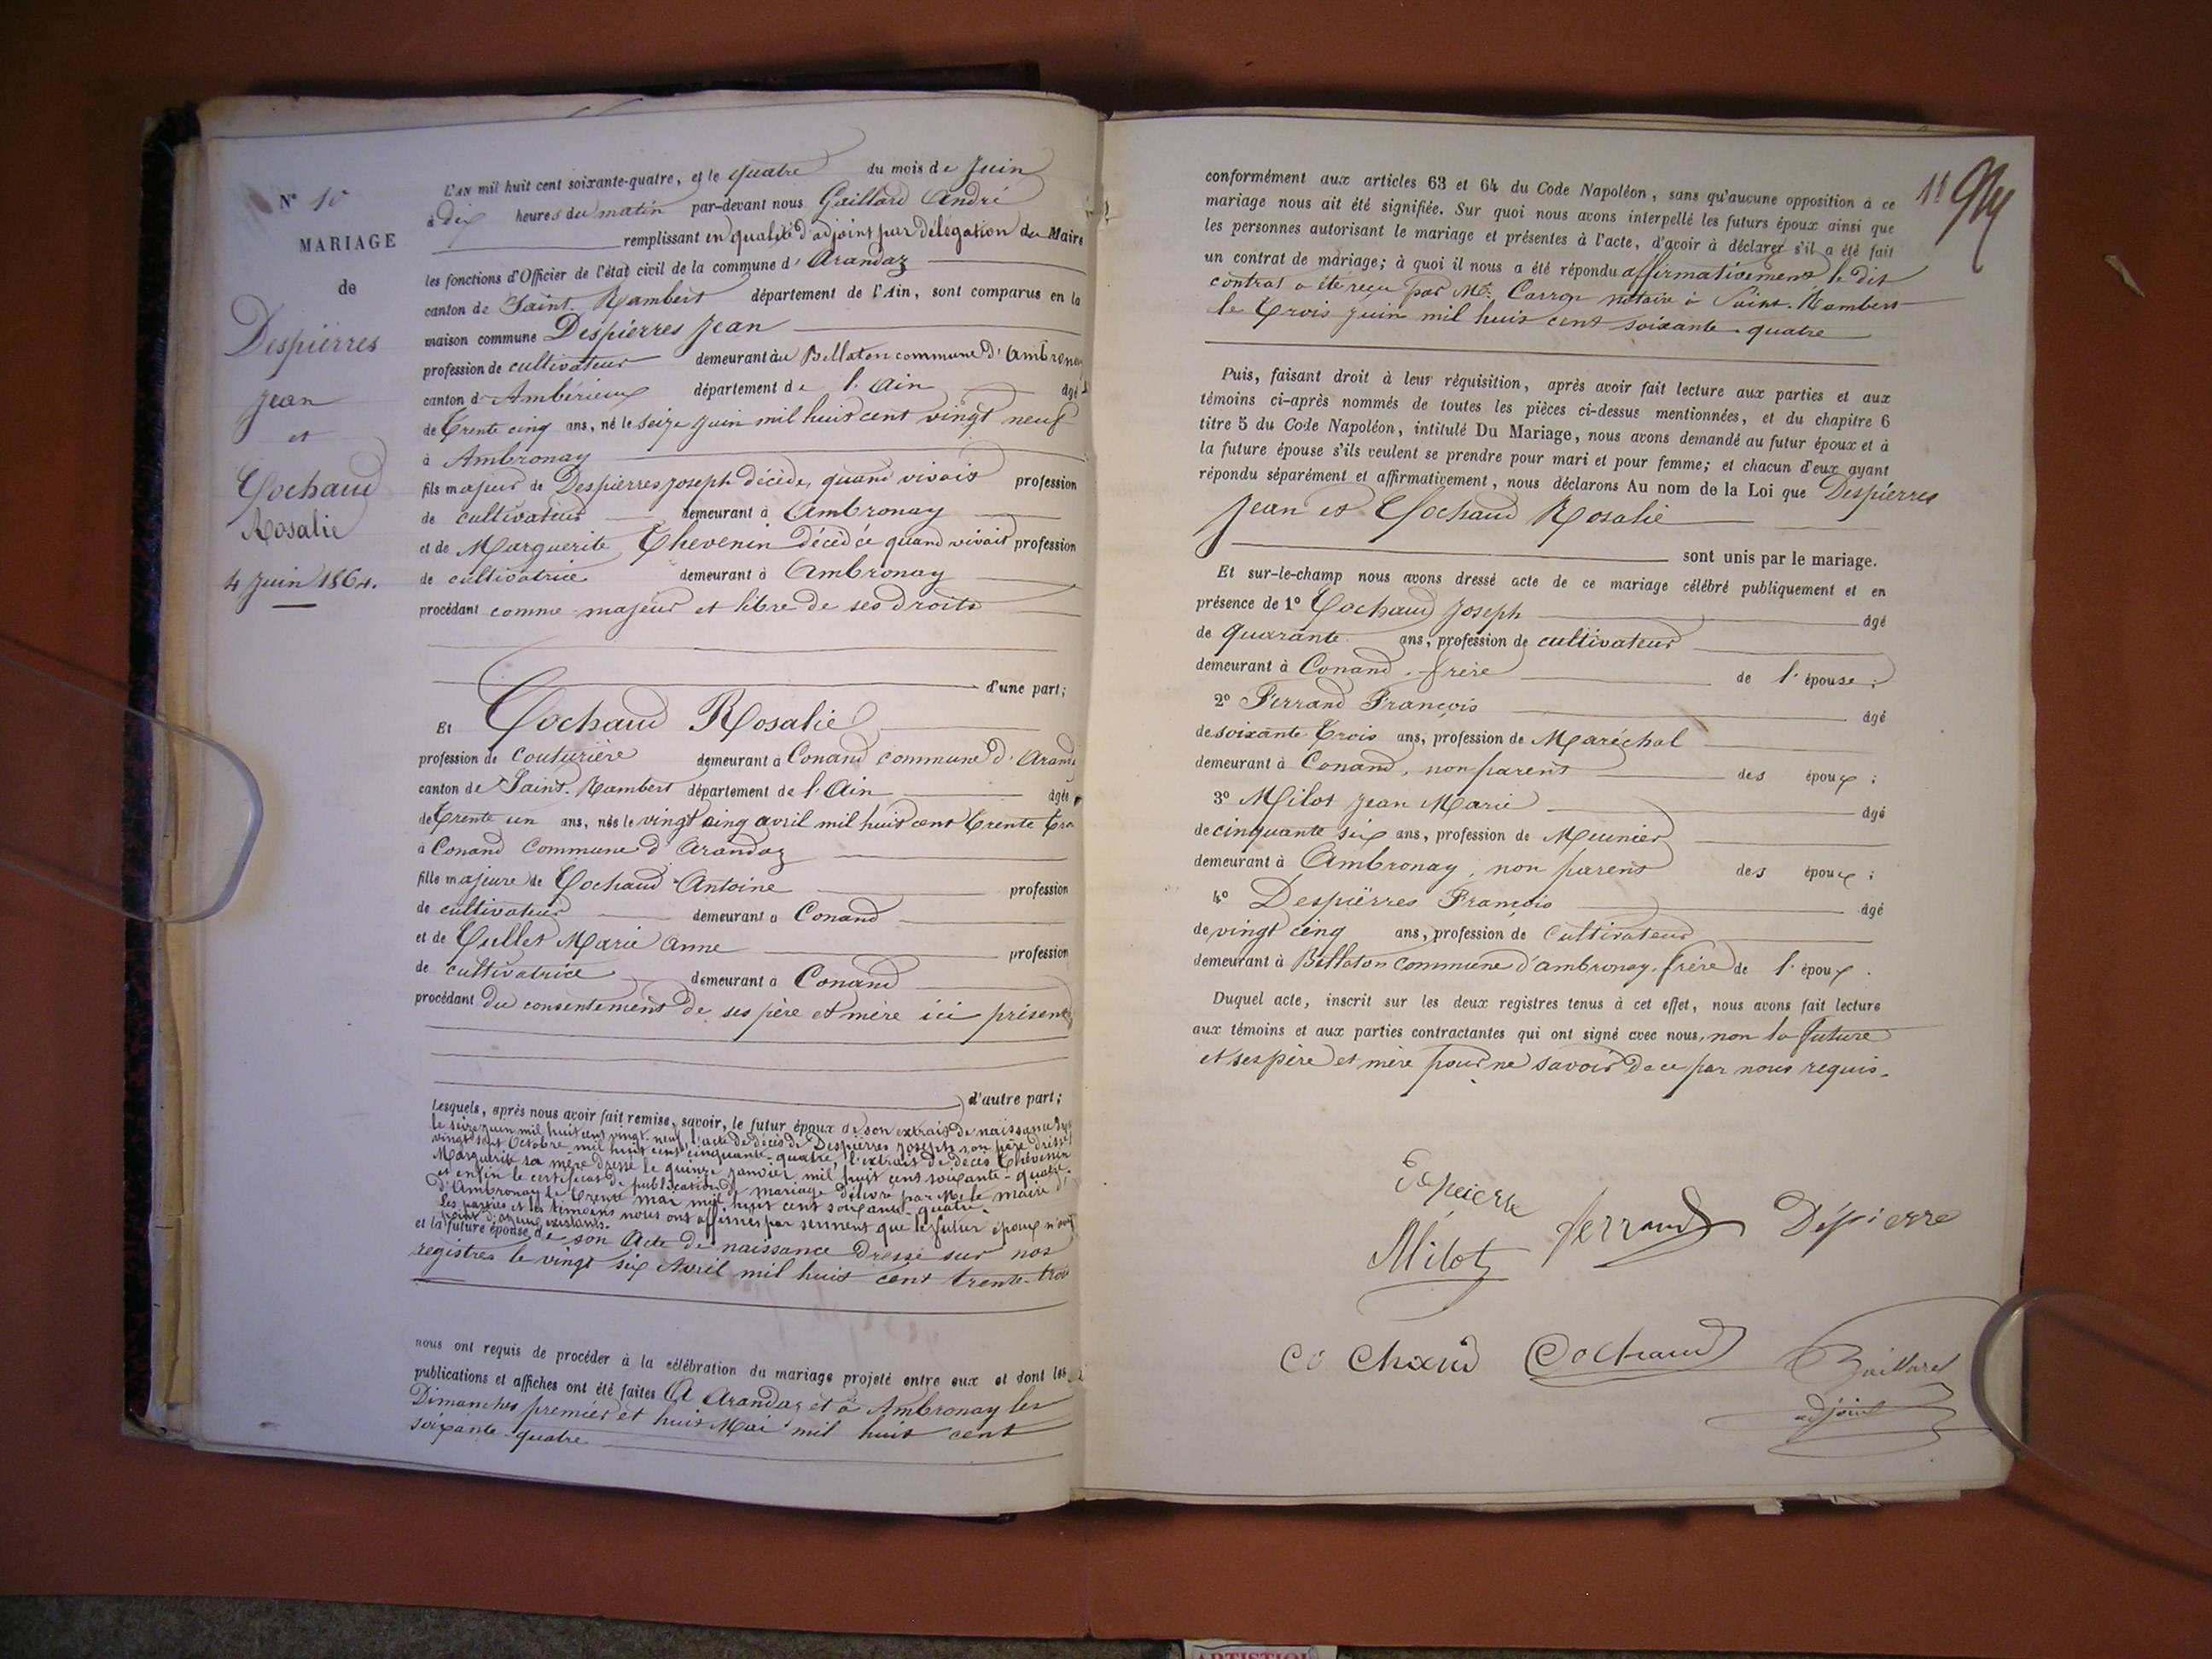 N° 10
MARIAGE
de
Despierres
Jean
et
Cochaud
Rosalie
4 Juin 1864.
L'AN mil huit cent soixante-quatre, et le quatre du mois de Juin
à dix heures du matin par-devant nous Gaillard André
remplissant en qualité d'adjoint par délégation du Maire
les fonctions d'Officier de l'état civil de la commune d'Arandaz
canton de Saint-Rambert département de l'Ain, sont comparus en la
maison commune Despierres Jean
profession de cultivateur demeurant au Bellaton commune d'Ambronay
canton d'Ambérieux département de l'Ain âgé
de trente cinq ans, né le seize juin mil huit cent vingt neuf
à Ambronay
fils majeur de Despierres Joseph décédé, quand vivait profession
de cultivateur demeurant à Ambronay
et de Marguerite Thevenin décédée quand vivait profession
de cultivatrice demeurant à Ambronay
procédant comme majeur et libre de ses droits
d'une part;
Et Cochaud Rosalie
profession de couturière demeurant à Conand commune d'Arand
canton de Saint-Rambert département de l'Ain âgée
de trente un ans, née le vingt cinq avril mil huit cent trente tro
à Conand Commune d'Arandaz
fille majeure de Cochaud Antoine profession
de cultivateur demeurant à Conand
et de Cullet Marie Anne profession
de cultivatrice demeurant à Conand
procédant du consentement de ses père et mère ici présents
d'autre part;
Lesquels, après nous avoir fait remise, savoir, le futur époux de son extrait de naissance
le seize juin mil huit cent vingt-neuf, l'acte de décès de Despierres Joseph son père dressé
vingt sept Octobre mil huit cent cinquante-quatre, l'extrait de décès Thévenin
Marguerite sa mère dressé le quinze janvier mil huit cent soixante-quatre,
et enfin le certificat de publication de mariage délivré par Mr le maire
d'Ambronay le trente mai mil huit cent soixante-quatre.
Les parties et les témoins nous ont affirmé par serment que le futur époux n'avait
point d'ayeux existants.
et la future épouse de son Acte de naissance dressé sur nos
registres le vingt six Avril mil huit cent trente-trois
nous ont requis de procéder à la célébration du mariage projeté entre eux et dont les
publications et affiches ont été faites à Arandaz et à Ambronay les
Dimanches premier et huit Mai mil huit cent
soixante-quatre
11
conformément aux articles 63 et 64 du Code Napoléon, sans qu'aucune opposition à ce
mariage nous ait été signifiée. Sur quoi nous avons interpellé les futurs époux ainsi que
les personnes autorisant le mariage et présentes à l'acte, d'avoir à déclarer s'il a été fait
un contrat de mariage; à quoi il nous a été répondu affirmativement le dit
contrat a été reçu par Me. Carron notaire à Saint-Rambert
le trois juin mil huit cent soixante-quatre
Puis, faisant droit à leur réquisition, après avoir fait lecture aux parties et aux
témoins ci-après nommés de toutes les pièces ci-dessus mentionnées, et du chapitre 6
titre 5 du Code Napoléon, intitulé Du Mariage, nous avons demandé au futur époux et à
la future épouse s'ils veulent se prendre pour mari et pour femme; et chacun d'eux ayant
répondu séparément et affirmativement, nous déclarons Au nom de la Loi que Despierres
Jean et Cochaud Rosalie
sont unis par le mariage.
Et sur-le-champ nous avons dressé acte de ce mariage célébré publiquement et en
présence de 1° Cochaud Joseph âgé
de quarante ans, profession de cultivateur
demeurant à Conand, frère de l'épouse;
2° Ferrand François âgé
de soixante trois ans, profession de Maréchal
demeurant à Conand, non parent des époux;
3° Milot Jean Marie âgé
de cinquante six ans, profession de Meunier
demeurant à Ambronay, non parent des époux;
4° Despierres François âgé
de vingt cinq ans, profession de Cultivateur
demeurant à Bellaton commune d'ambronay, frère de l'époux.
Duquel acte, inscrit sur les deux registres tenus à cet effet, nous avons fait lecture
aux témoins et aux parties contractantes qui ont signé avec nous, non la future
et ses père et mère pour ne savoir de ce par nous requis.
Depierre
Milot ferrand Dépierre
Co chaud Cochaud Gaillard
adjoint